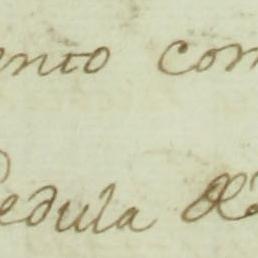 ento com
edula